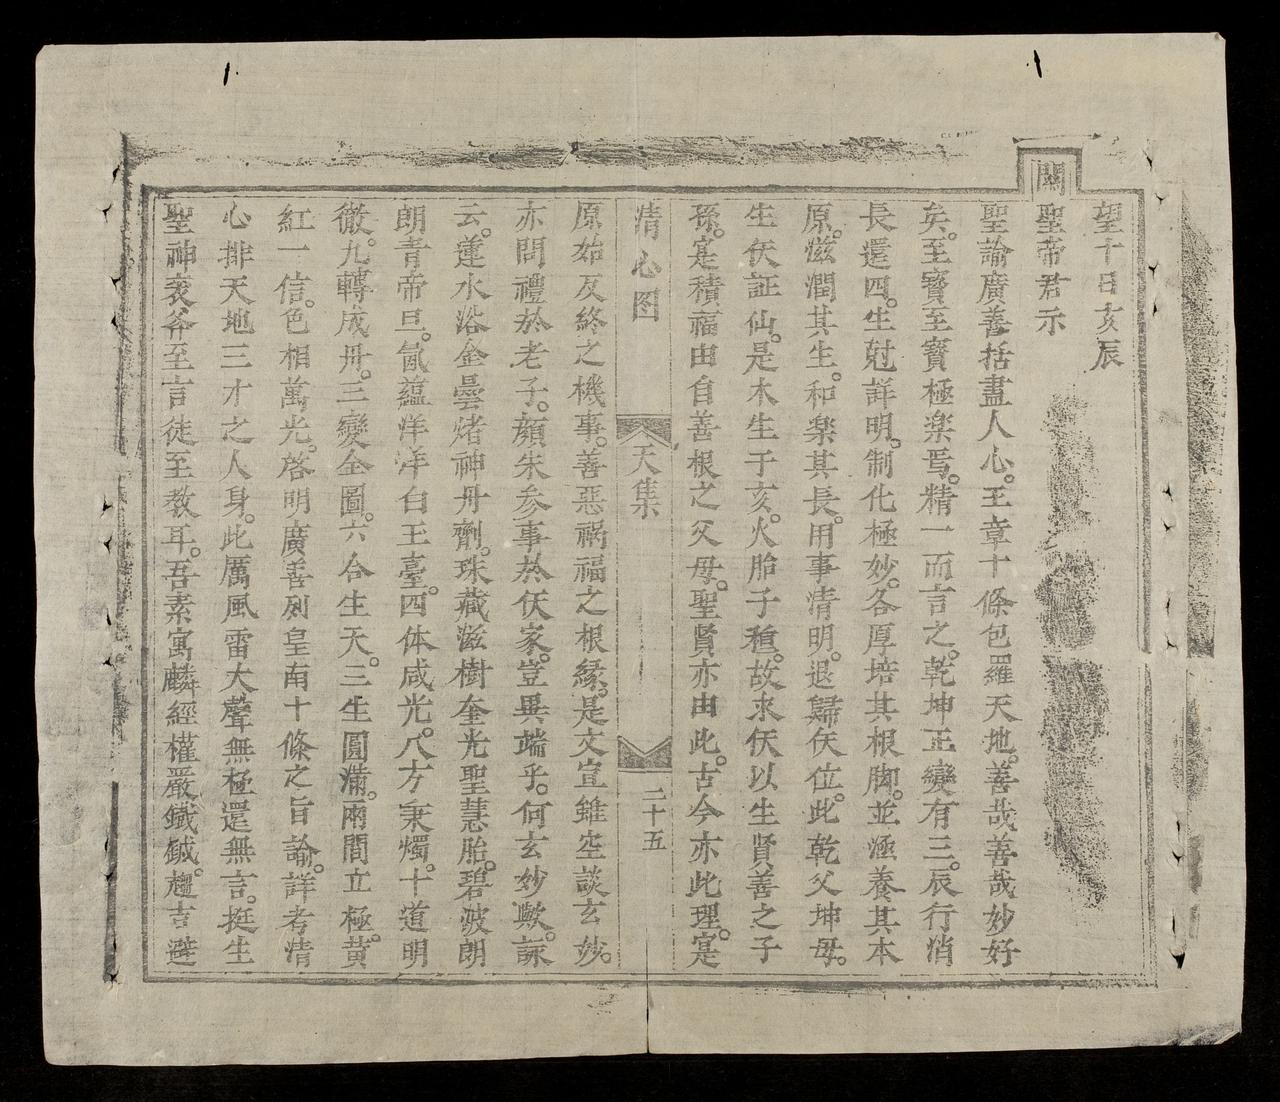 望十日亥辰
關
聖帝君示
聖諭廣善括盡人心。王章十條包羅天地。善哉善哉妙好
矣。至寶至寶極楽焉。精一而言之。乾坤正變有三。辰行消
長還四。生尅詳明。制化極妙。各厚培其根脚。並涵養其本
原。滋潤其生。和楽其長。用事清明。退歸仸位。此乾父坤母。
生仸証仙。是木生于亥。火胎子種。故求仸以生賢善之子
孫。寔積福由自善根之父母。聖賢亦由此。古今亦此理。寔
清心图 天集 二十五
原始反終之機事。善惡禍福之根緣。是文宣雖空談玄妙。
亦問禮於老子。顏朱参事於仸家。豈異端乎。何玄妙歟。詠
云。蓮水浴金曇烤神丹劑。珠藏滋樹奎光聖慧胎。碧波朗
朗青帝旦。氤蘊洋洋白王臺。四体咸光。八方秉燭。十道明
徹。九轉成丹。三變全圖。六合生天。三生圓滿。兩間立極。黄
紅一信。色相萬光。啓明廣善列皇南十條之旨諭。詳考清
心排天地三才之人身。此厲風雷大聲無極還無言。挺生
聖神衮斧至言徒至教耳。吾素寓麟經權嚴鐵鉞。趨吉避